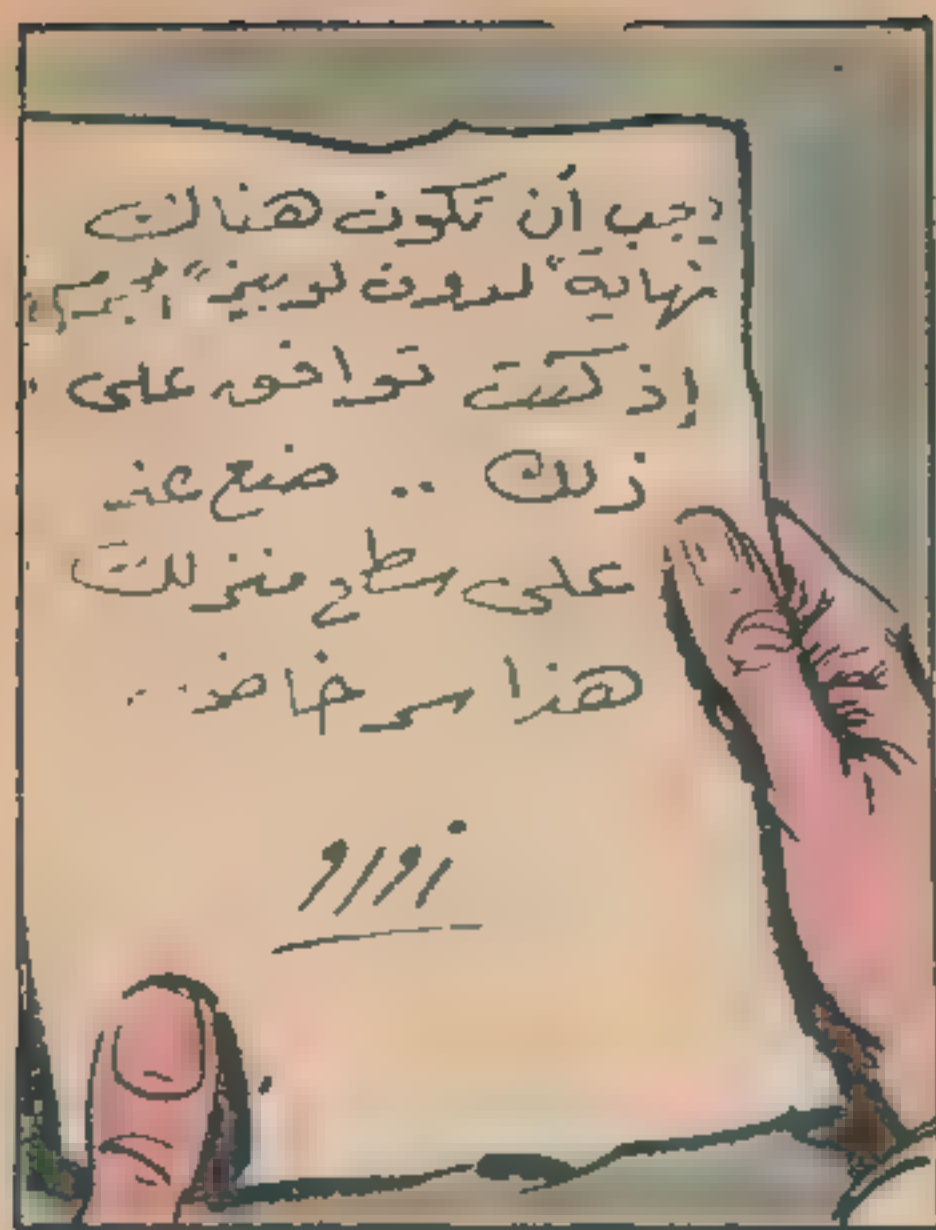 يجب أن تكون هناك
نهاية "لدون لوبيز"
إذ كنت توافق على
ذلك .. ضع
على سطح منزلك
هذا سر خاص ..
زورو